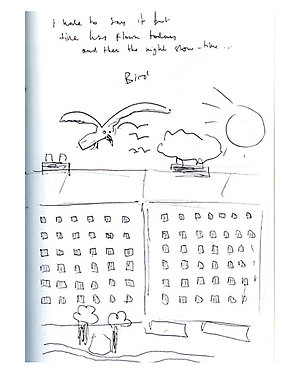 I hate to say it but
time has flown today
and then the night show-time ...
Bird